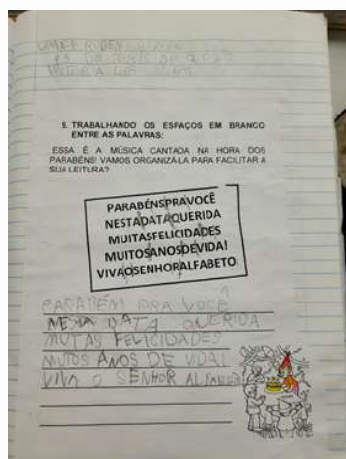 5. TRABALHANDO OS ESPAÇOS EM BRANCO
ENTRE AS PALAVRAS:
ESSA É A MÚSICA CANTADA NA HORA DOS
PARABÉNS! VAMOS ORGANIZÁ-LA PARA FACILITAR A
SUA LEITURA?
PARABÉNSPRAVOCÊ
NESTADATAQUERIDA
MUITASFELICIDADES
MUITOSANOSDEVIDA!
VIVAOSENHORALFABETO
PARABÉM PRA VOCÊ
NESTA DATA QUERIDA
MUTAS FELICIDADES
MUTOS ANOS DE VIDA!
VIVA O SENHOR